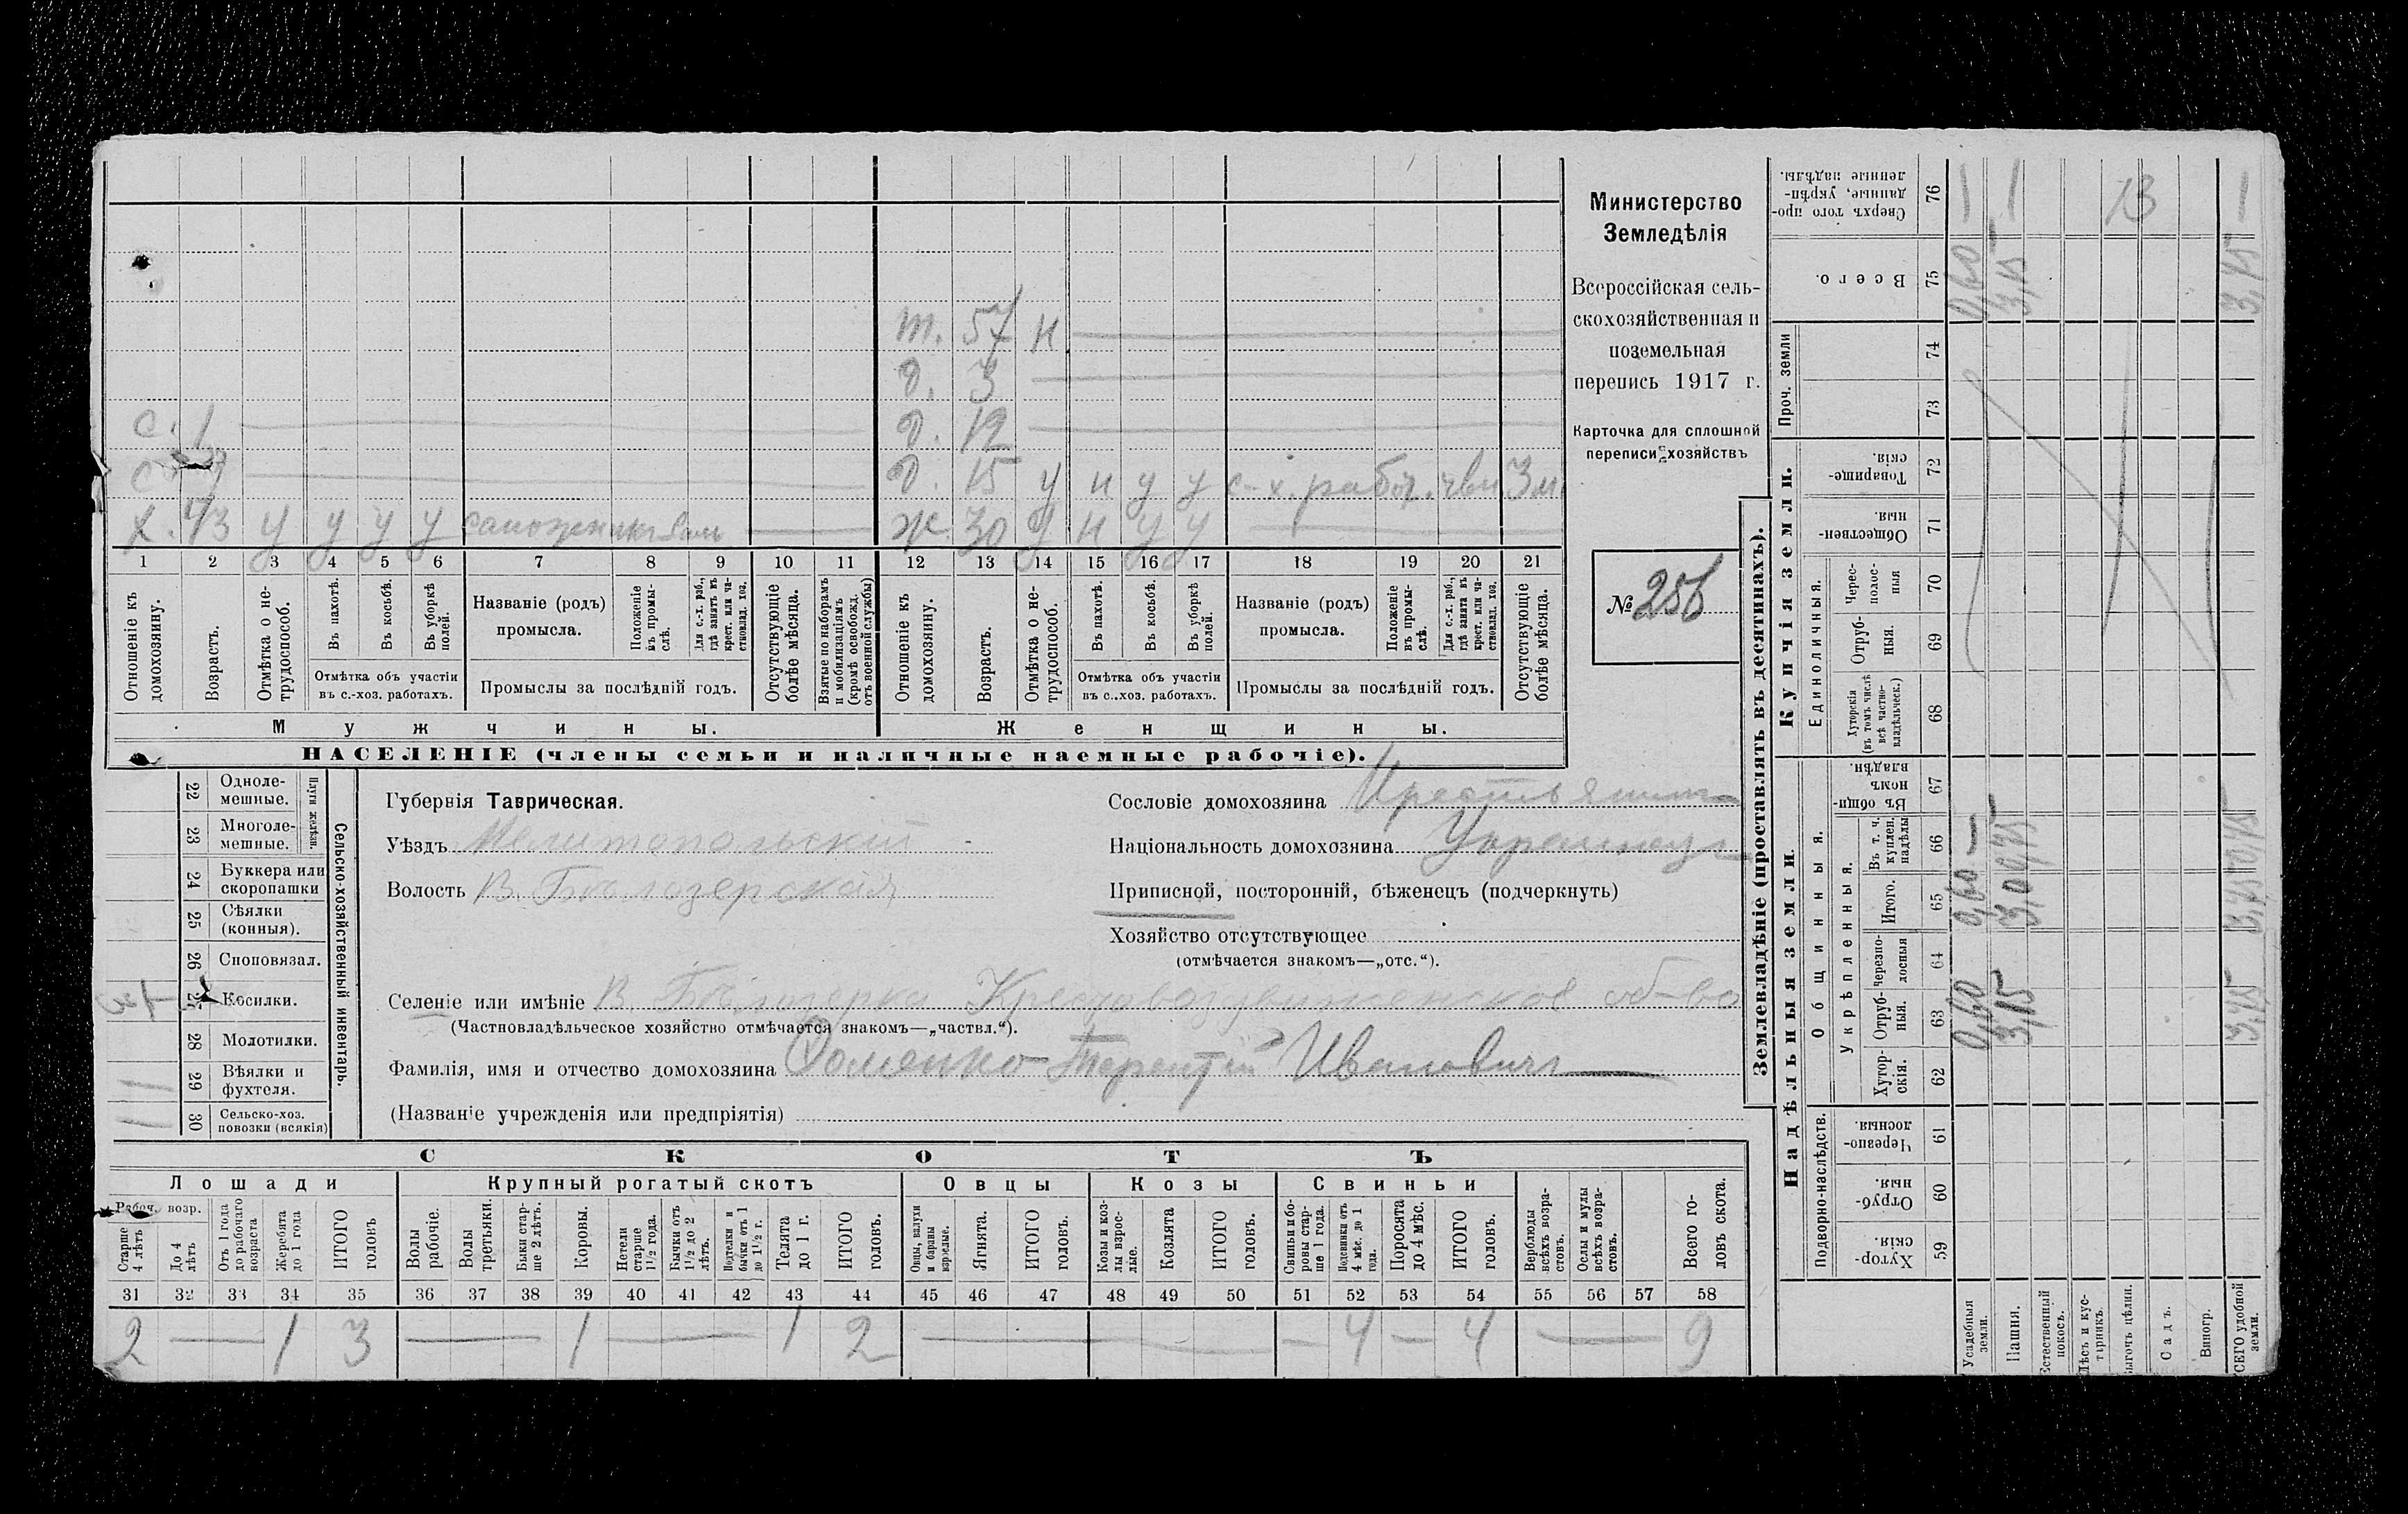 Министерство
Земледѣлія
Всероссійская сель-
скохозяйственная и
поземельная
перепись 1917 г.
Карточка для сплошной
переписи хозяйствъ
№ 256
т. 57 н
д. 3
с. 1 д. 12
с. д. 15 у н у у с-х. рабоч. 3 м
х. 43 у у у у сапожникъ ж. 30 у н у у
1 2 3 4 5 6 7 8 9 10 11 12 13 14 15 16 17 18 19 20 21
Отношеніе къ домохозяину.
Возрастъ.
Отмѣтка о не-трудоспособ.
Въ пахотѣ.
Въ косьбѣ.
Въ уборкѣ полей.
Отмѣтка объ участіи
въ с.-хоз. работахъ.
Названіе (родъ)
промысла.
Положеніе въ промы-слѣ.
Для с.-х. раб., гдѣ занятъ въ крест. или ча-стновлад. хоз.
Промыслы за послѣдній годъ.
Отсутствующіе болѣе мѣсяца.
Взятые по наборамъ и мобилизаціямъ (кромѣ освобожд. отъ военной службы)
Отношеніе къ домохозяину.
Возрастъ.
Отмѣтка о не-трудоспособ.
Въ пахотѣ.
Въ косьбѣ.
Въ уборкѣ полей.
Отмѣтка объ участіи
въ с..хоз. работахъ.
Названіе (родъ)
промысла.
Положеніе въ промы-слѣ.
Для с.-х. раб., гдѣ заняти въ крест. или ча-стновлад. хоз.
Промыслы за послѣдній годъ.
Отсутствующіе болѣе мѣсяца.
Мужчины. Женщины.
НАСЕЛЕНІЕ (члены семьи и наличные наемные рабочіе).
22 Одноле-мешные.
23 Многоле-мешные.
Плуги желѣзн.
24 Буккера или скоропашки
25 Сѣялки (конныя).
26 Сноповязал.
27 Косилки.
28 Молотилки.
1 29 Вѣялки и фухтеля.
1 30 Сельско-хоз. повозки (всякія)
Сельско-хозяйственный инвентарь.
Губернія Таврическая.
Уѣздъ Мелитопольскій
Волость В. Бѣлозерская
Сословіе домохозяина Крестьянинъ
Національность домохозяина Украинецъ
Приписной, посторонній, бѣженецъ (подчеркнуть)
Хозяйство отсутствующее
(отмѣчается знакомъ—„отс.“).
Селеніе или имѣніе В. Бѣлозерка Крестовоздвиженское об-во
(Частновладѣльческое хозяйство отмѣчается знакомъ—„частвл.“).
Фамилія, имя и отчество домохозяина Доменко Терентій Ивановичъ
(Названіе учрежденія или предпріятія)
СКОТЪ
Лошади Крупный рогатый скотъ Овцы Козы Свиньи
Рабоч. возр.
Старше 4 лѣтъ
До 4 лѣтъ
Отъ 1 года до рабочаго возраста
Жеребята до 1 года
ИТОГО головъ
Волы рабочіе.
Волы третьяки.
Быки стар-ше 2 лѣтъ.
Коровы.
Нетели старше 1½ года.
Бычки отъ 1½ до 2 лѣтъ.
Подтелки и бычки отъ 1 до 1½ г.
Телята до 1 г.
ИТОГО головъ.
Овцы, валухи и бараны взрослые.
Ягнята.
ИТОГО головъ.
Козы и коз-лы взрос-лые.
Козлята
ИТОГО головъ.
Свиньи и бо-ровы стар-ше 1 года.
Подсвинки отъ 4 мѣс. до 1 года.
Поросята до 4 мѣс.
ИТОГО головъ.
Верблюды всѣхъ возра-стовъ.
Ослы и мулы всѣхъ возра-стовъ.
Всего го-ловъ скота.
31 32 33 34 35 36 37 38 39 40 41 42 43 44 45 46 47 48 49 50 51 52 53 54 55 56 57 58
2 — 1 3 — 1 — 1 2 — — 4 — 4 — 9
Землевладѣніе (проставлять въ десятинахъ).
Купчія земли.
Надѣльныя земли.
Сверхъ того про-данные, укрѣп-ленные надѣлы. 76 — — 13 —
Всего. 75 0,60 3,15
Проч. земли 74
73
Товарище-скія. 72
Обществен-ныя. 71
Единоличныя.
Черес-полос-ныя 70
Отруб-ныя. 69
Хуторскія (въ томъ числѣ всѣ частно-владѣльческ.) 68
Общинныя.
Въ общи-номъ владѣн. 67
Укрѣпленныя.
Въ т. ч. куплен. надѣлы 66 —
Итого. 65 0,60
Черезпо-лосныя 64
Отруб-ныя. 63 0,60 3,15
Хутор-скія. 62
Подворно-наслѣдств.
Черезпо-лосныя 61
Отруб-ныя. 60
Хутор-скія. 59
Усадебныя земли.
Пашня.
Естественный покосъ.
Лѣсъ и кус-тарникъ.
Выгонъ цѣлин.
Садъ.
Виногр.
ВСЕГО удобной земли.